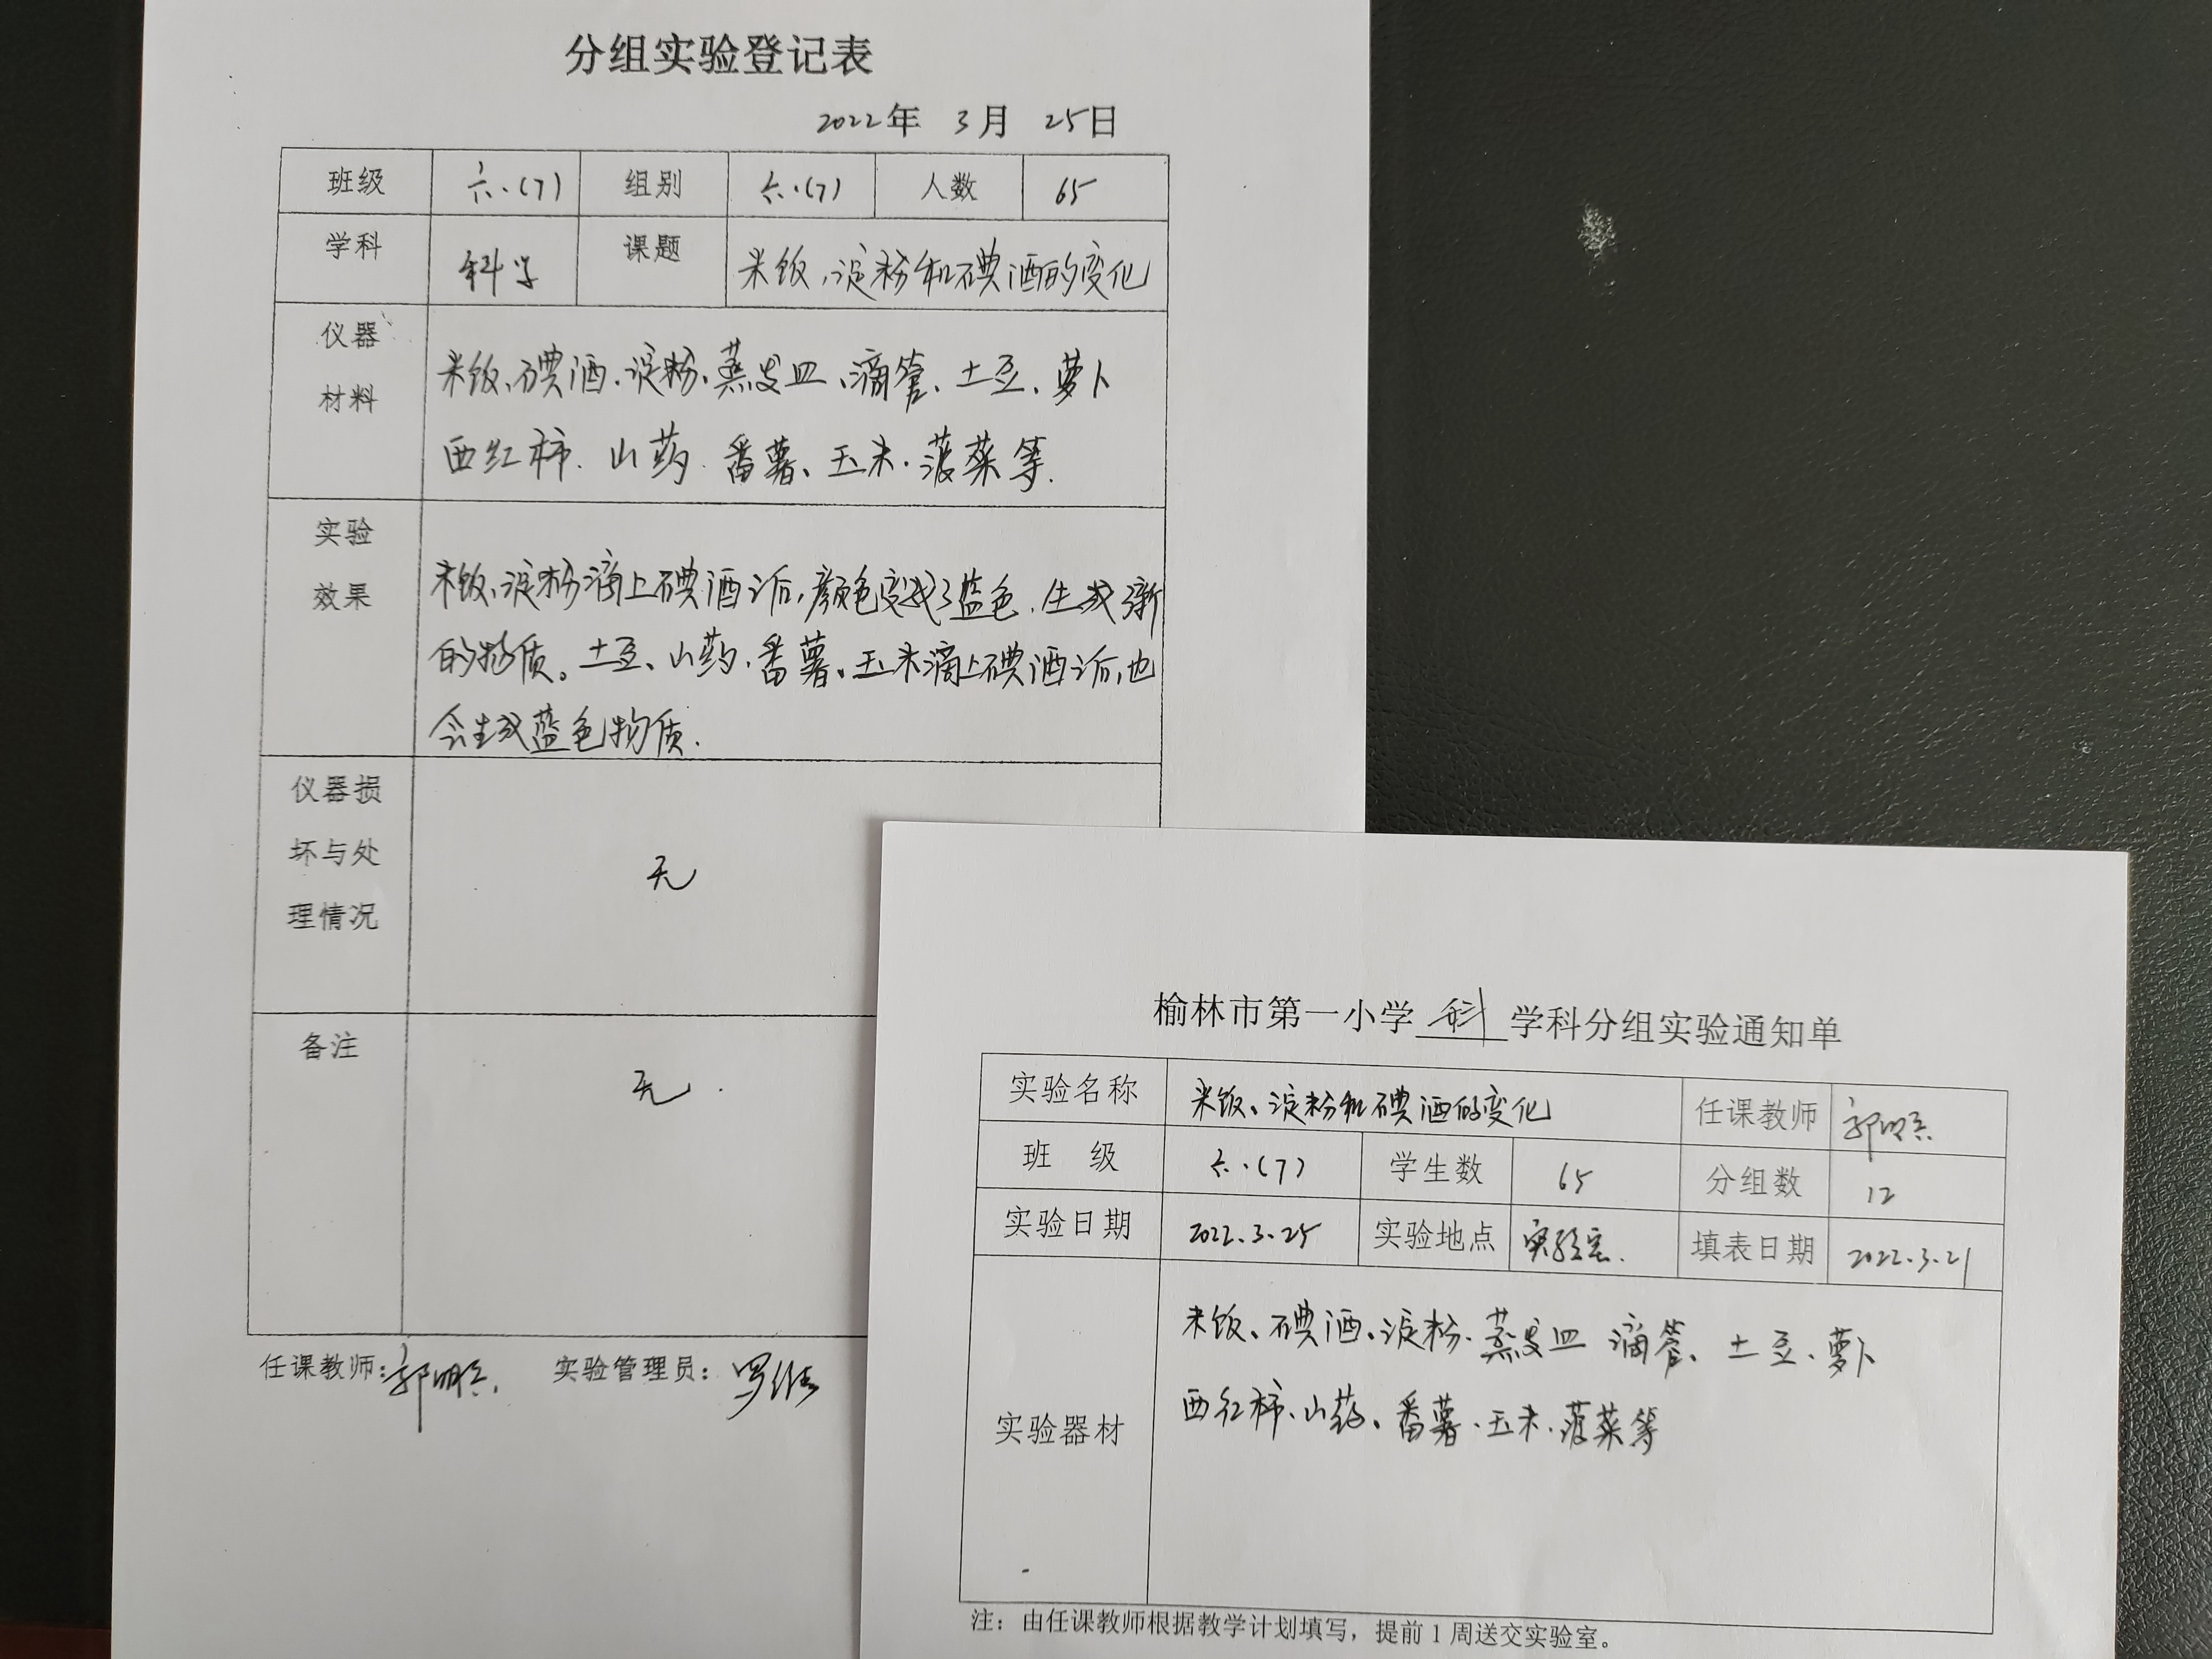 分组实验登记表
2022年 3月 25日
班级 六.(7) 组别 六.(7) 人数 65
学科 科学 课题 米饭、淀粉和碘酒的变化
仪器
材料
米饭、碘酒、淀粉、蒸发皿、滴管、土豆、萝卜
西红柿、山药、番薯、玉米、菠菜等.
实验
效果
米饭、淀粉滴上碘酒后,颜色变成了蓝色.生成新
的物质。土豆、山药、番薯、玉米滴上碘酒后,也
会生成蓝色物质.
仪器损
坏与处
理情况
无
备注
无.
任课教师: 实验管理员:
榆林市第一小学 科 学科分组实验通知单
实验名称 米饭、淀粉和碘酒的变化 任课教师
班 级 六.(7) 学生数 65 分组数 12
实验日期 2022.3.25 实验地点 实验室. 填表日期 2022.3.21
实验器材
米饭、碘酒、淀粉、蒸发皿 滴管、土豆、萝卜
西红柿、山药、番薯、玉米、菠菜等
注：由任课教师根据教学计划填写，提前1周送交实验室。